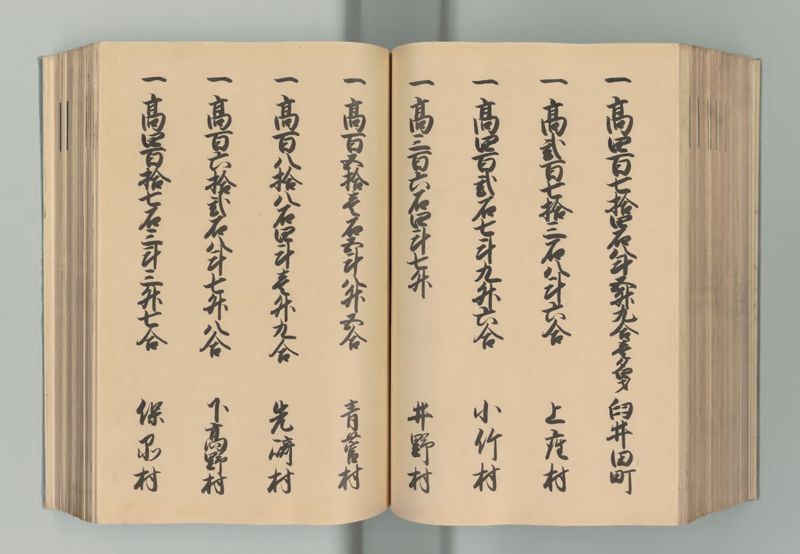 一高四百七拾四石八斗弐升九合壱勺 臼井田町
一高弐百七拾三石八斗六合 上座村
一高四百弐石七斗九升六合 小竹村
一高三百六石四斗七升 井野村
一高百五拾壱石五斗八升五合 青菅村
一高百八拾八石四斗壱升九合 先崎村
一高百六拾弐石八斗七升八合 下高野村
一高四百拾七石三斗三升七合 保品村